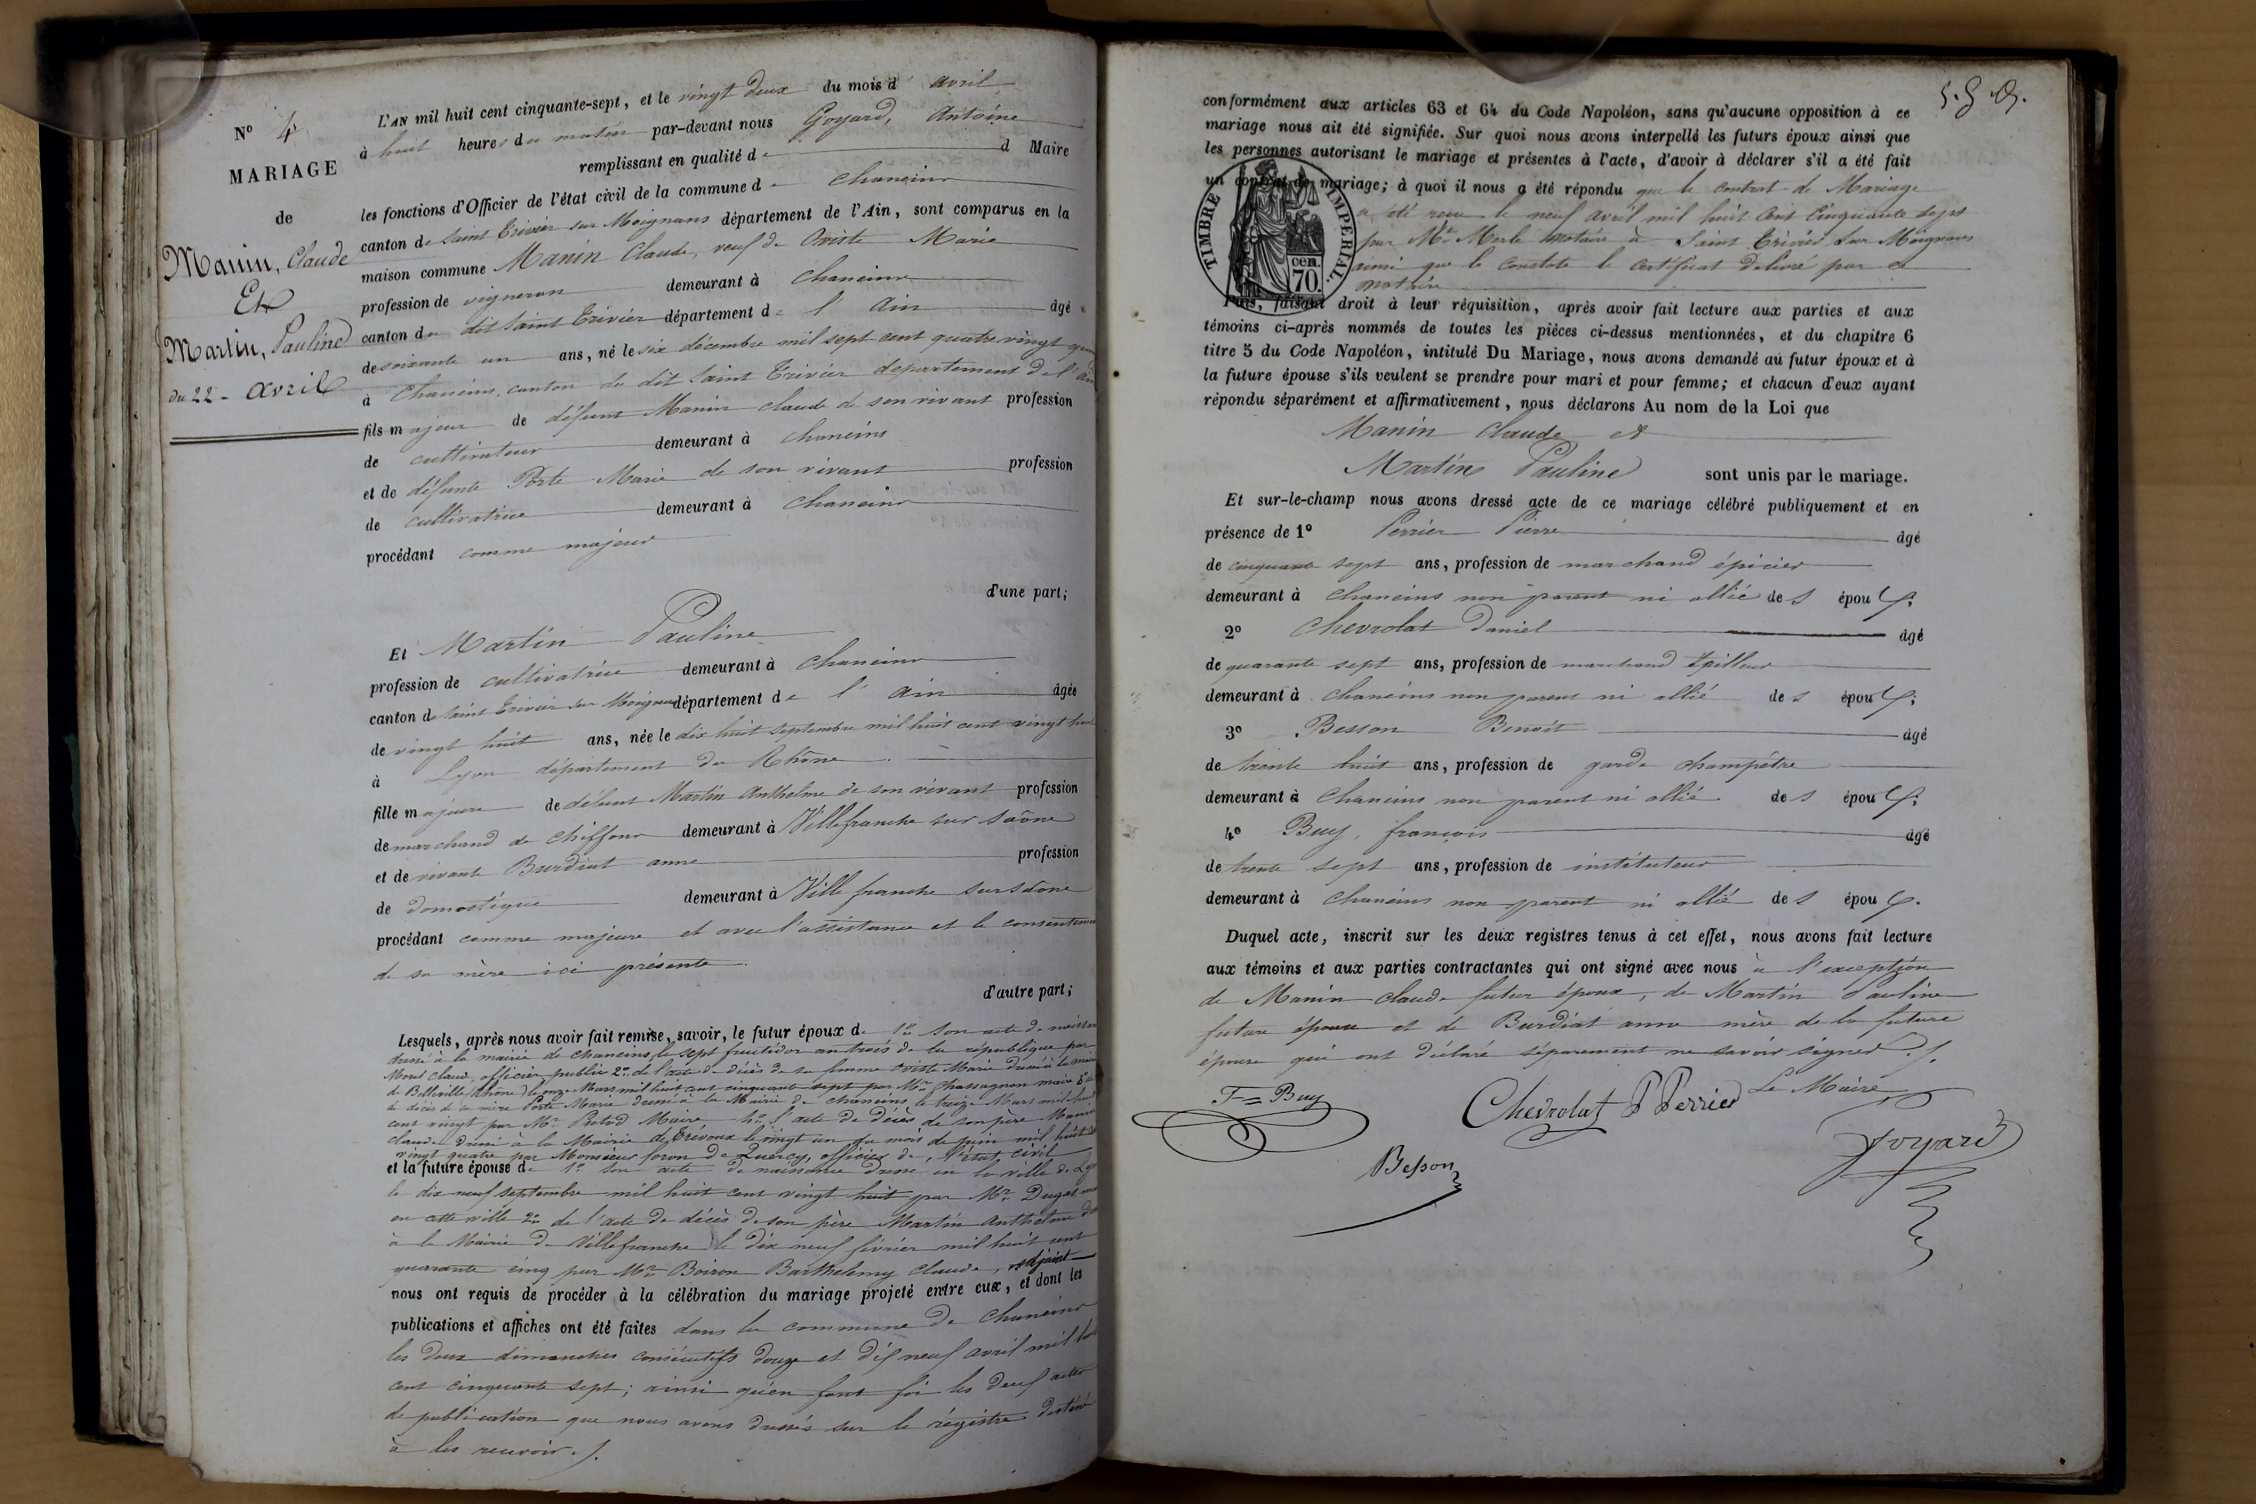 N° 4
MARIAGE
de
Manin, Claude
Et
Martin, Pauline
du 22 - avril
L'AN mil huit cent cinquante-sept, et le vingt deux du mois d'avril
à huit heures du matin par-devant nous Goyard, Antoine
remplissant en qualité de d Maire
les fonctions d'Officier de l'état civil de la commune de Chaneins
canton de Saint Trivier sur Moignans département de l'Ain, sont comparus en la
maison commune Manin Claude, veuf de Oviste Marie
profession de vigneron demeurant à Chaneins
canton de dit Saint Trivier département de l'Ain âgé
de soixante un ans, né le six décembre mil sept cent quatre vingt
à Chaneins, canton du dit Saint Trivier département de l'Ain
fils majeur de défunt Manin Claude de son vivant profession
de cultivateur demeurant à Chaneins
et de défunte Porte Marie de son vivant profession
de cultivatrice demeurant à Chaneins
procédant comme majeur
d'une part;
Et Martin Pauline
profession de cultivatrice demeurant à Chaneins
canton de Saint Trivier sur Moignans département de l'Ain âgée
de vingt huit ans, née le dix huit septembre mil huit cent vingt huit
à Lyon département du Rhône
fille majeure de défunt Martin Anthelme de son vivant profession
de marchand de chiffons demeurant à Villefranche sur Saône
et de vivante Burdiat anne profession
de domestique demeurant à Villefranche sur Saône
procédant comme majeure et avec l'assistance et le consentement
de sa mère ici présente
d'autre part;
Lesquels, après nous avoir fait remise, savoir, le futur époux de 1° son acte de naissance
dressé à la mairie de Chaneins le sept fructidor an trois de la république par
Morel Claude, officier public 2° de l'acte de décès de sa femme Oviste Marie dressé à la mairie
de Belleville (Rhône) le onze Mars mil huit cent cinquante sept par Mr Chassagnon maire 3°
de décès de sa mère Porte Marie dressé à la Mairie de Chaneins le treize Mars mil huit
cent vingt par Mr Maire 4° l'acte de décès de son père Manin
Claude dressé à la Mairie de Trévoux le vingt un du mois de juin mil huit cent
vingt quatre par Monsieur de Quercy, officier de l'état civil
et la future épouse de 1° son acte de naissance dressé en la ville de Lyon
le dix neuf septembre mil huit cent vingt huit par Mr
en cette ville 2° de l'acte de décès de son père Martin Anthelme
à la Mairie de Villefranche le dix neuf février mil huit cent
quarante cinq par Mr Boiron Barthelemy Claude, adjoint
nous ont requis de procéder à la célébration du mariage projeté entre eux, et dont les
publications et affiches ont été faites dans la commune de Chaneins
les deux dimanches consécutifs douze et dix neuf avril mil huit
cent cinquante sept; ainsi qu'en font foi les deux actes
de publication que nous avons dressés sur le régistre destiné
à les recevoir ./.
conformément aux articles 63 et 64 du Code Napoléon, sans qu'aucune opposition à ce
mariage nous ait été signifiée. Sur quoi nous avons interpellé les futurs époux ainsi que
les personnes autorisant le mariage et présentes à l'acte, d'avoir à déclarer s'il a été fait
un contrat de mariage; à quoi il nous a été répondu que le contrat de Mariage
a été reçu le neuf avril mil huit cent cinquante sept
par Me Merle notaire à Saint Trivier sur Moignans
ainsi que le constate le certificat délivré par ce
notaire
TIMBRE IMPERIAL
70. cen.
Puis, faisant droit à leur réquisition, après avoir fait lecture aux parties et aux
témoins ci-après nommés de toutes les pièces ci-dessus mentionnées, et du chapitre 6
titre 5 du Code Napoléon, intitulé Du Mariage, nous avons demandé au futur époux et à
la future épouse s'ils veulent se prendre pour mari et pour femme; et chacun d'eux ayant
répondu séparément et affirmativement, nous déclarons Au nom de la Loi que
Manin Claude et
Martin Pauline sont unis par le mariage.
Et sur-le-champ nous avons dressé acte de ce mariage célébré publiquement et en
présence de 1° Perrier Pierre âgé
de cinquante sept ans, profession de marchand épicier
demeurant à Chaneins non parent ni allié des époux.
2° Chevrolat Daniel âgé
de quarante sept ans, profession de marchand tailleur
demeurant à Chaneins non parent ni allié des époux.
3° Besson Benoit âgé
de trente huit ans, profession de garde champêtre
demeurant à Chaneins non parent ni allié des époux.
4° Buy, françois âgé
de trente sept ans, profession de instituteur
demeurant à Chaneins non parent ni allié des époux.
Duquel acte, inscrit sur les deux registres tenus à cet effet, nous avons fait lecture
aux témoins et aux parties contractantes qui ont signé avec nous à l'exception
de Manin Claude futur époux, de Martin Pauline
future épouse et de Burdiat anne mère de la future
épouse qui ont déclaré séparement ne savoir signer ./.
F = Buy
Chevrolat P Perrier Le Maire
Goyard
Besson